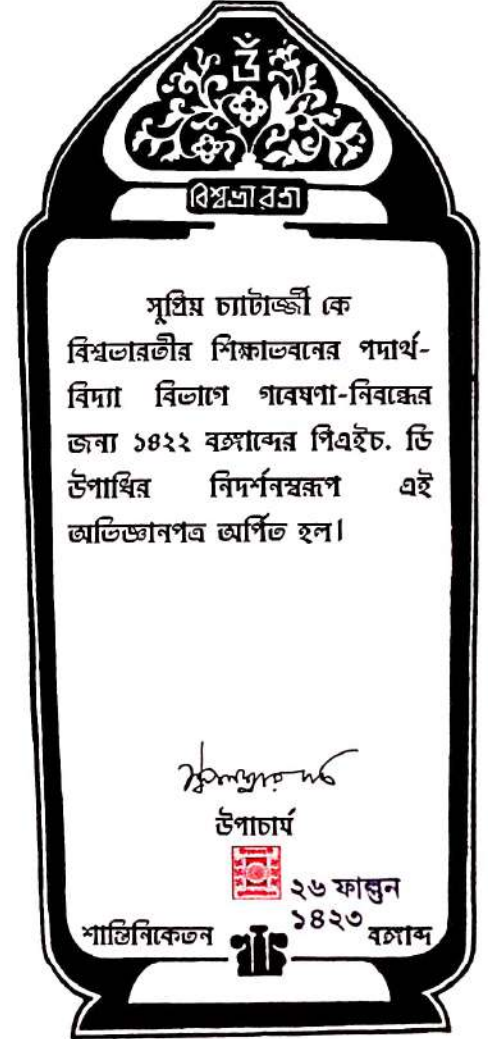 ওঁ
বিশ্বভারতী
সুপ্রিয় চ্যাটার্জ্জী কে
বিশ্বভারতীর শিক্ষাভবনের পদার্থ-
বিদ্যা বিভাগে গবেষণা-নিবন্ধের
জন্য ১৪২২ বঙ্গাব্দের পিএইচ. ডি
উপাধির নিদর্শনস্বরূপ এই
অভিজ্ঞানপত্র অর্পিত হল।
উপাচার্য
২৬ ফাল্গুন
শান্তিনিকেতন ১৪২৩ বঙ্গাব্দ